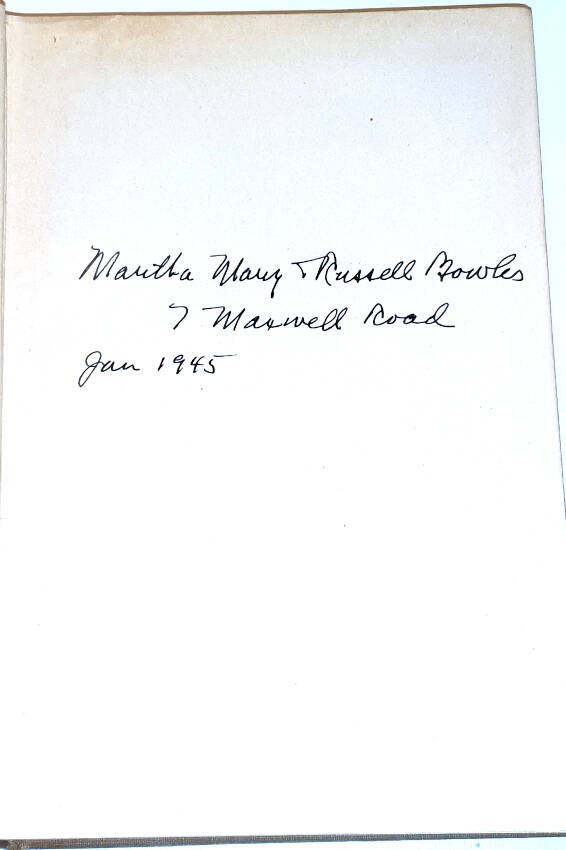 Martha Mary & Russell Bowles
7 Maxwell Road
Jan 1945